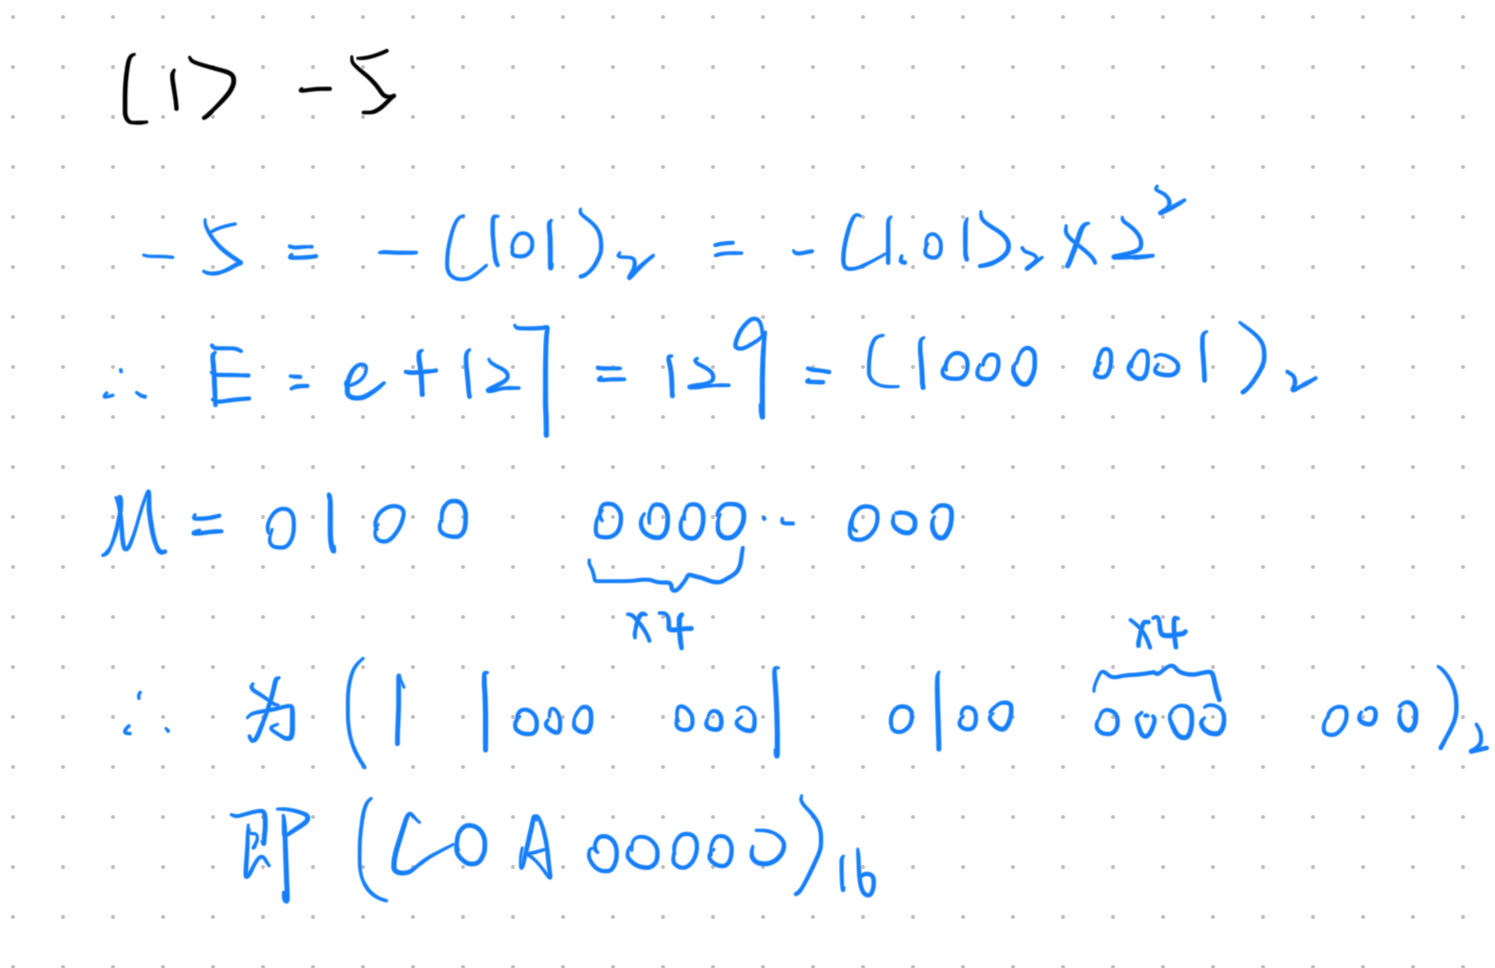 (1) -5
-5 = -(101)₂ = -(1.01)₂ × 2²
∴ E = e+127 = 129 = (1000 0001)₂
M = 0100 0000·· 000
×4
×4
∴ 为 (1 1000 0001 0100 0000 000)₂
即 (C0A00000)₁₆